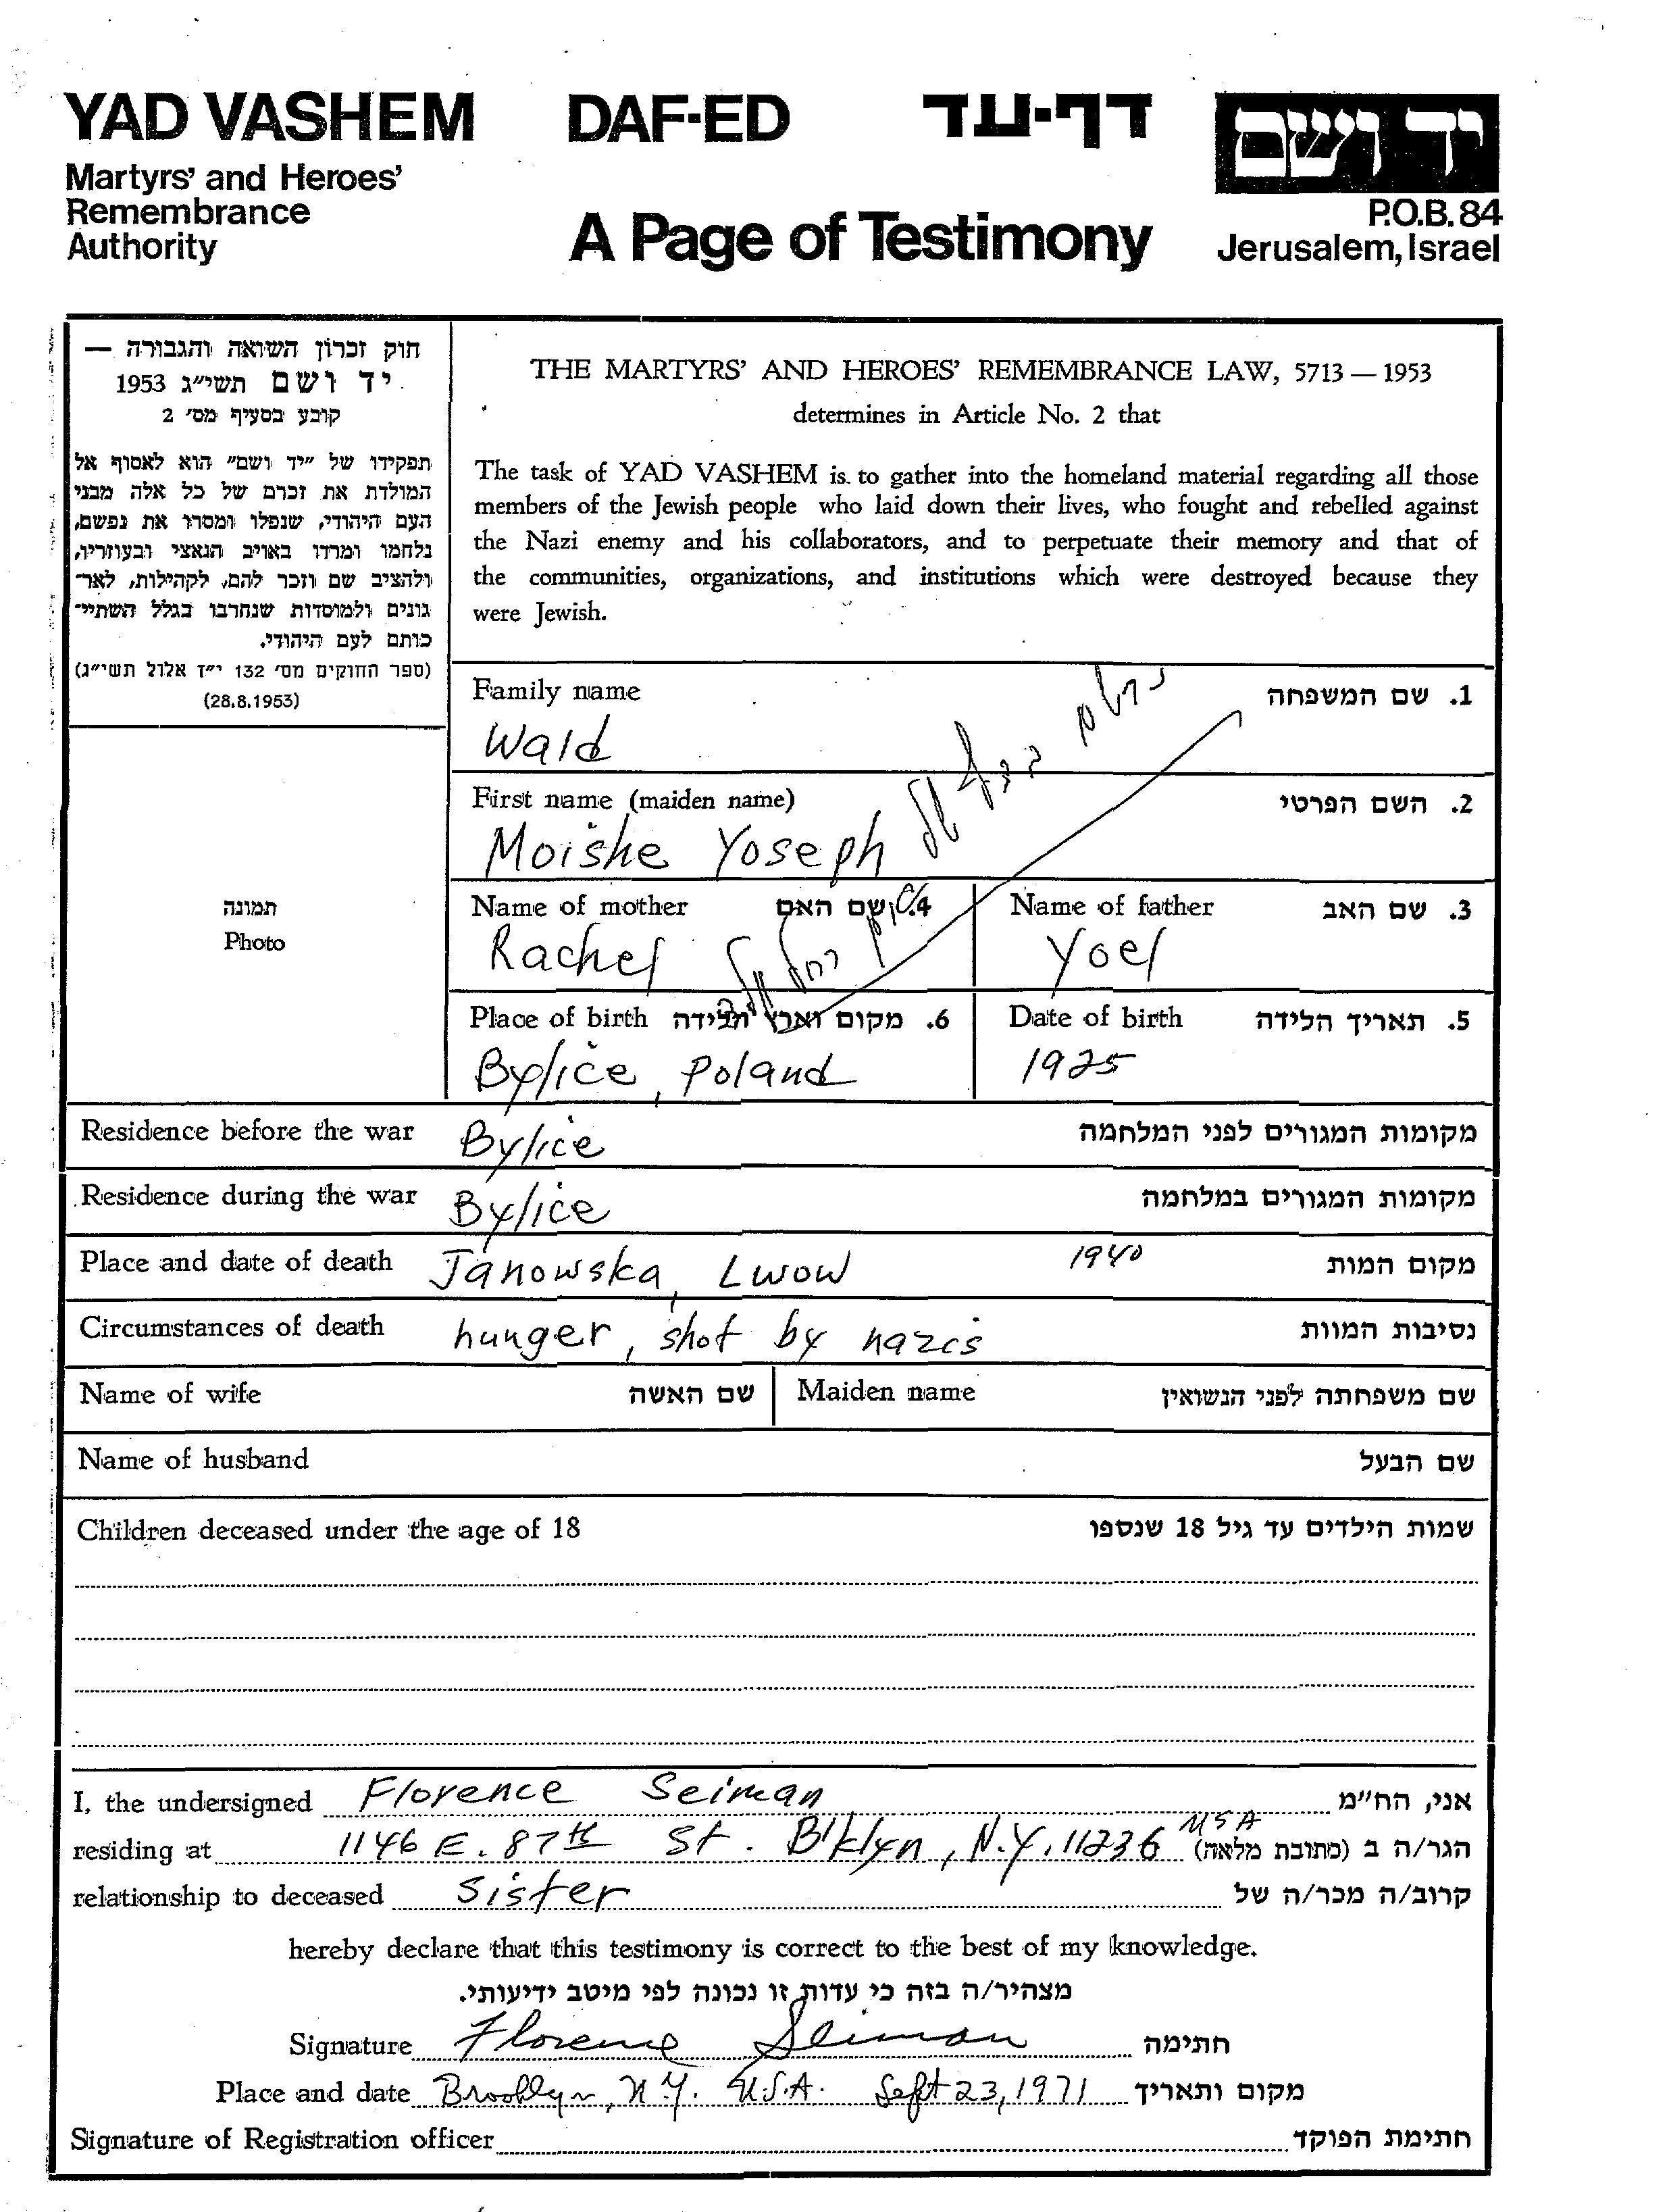 YAD VASHEM DAF-ED דף-עד יד ושם
Martyrs' and Heroes'
Remembrance
Authority
A Page of Testimony
P.O.B. 84
Jerusalem, Israel
חוק זכרון השואה והגבורה —
יד ושם תשי"ג 1953
קובע בסעיף מס' 2
תפקידו של "יד ושם" הוא לאסוף אל
המולדת את זכרם של כל אלה מבני
העם היהודי, שנפלו ומסרו את נפשם,
נלחמו ומרדו באויב הנאצי ובעוזריו,
ולהציב שם וזכר להם, לקהילות, לאר-
גונים ולמוסדות שנחרבו בגלל השתיי-
כותם לעם היהודי.
(ספר החוקים מס' 132 י"ז אלול תשי"ג)
(28.8.1953)
THE MARTYRS' AND HEROES' REMEMBRANCE LAW, 5713 — 1953
determines in Article No. 2 that
The task of YAD VASHEM is to gather into the homeland material regarding all those
members of the Jewish people who laid down their lives, who fought and rebelled against
the Nazi enemy and his collaborators, and to perpetuate their memory and that of
the communities, organizations, and institutions which were destroyed because they
were Jewish.
תמונה
Photo
Family name 1. שם המשפחה
Wald
First name (maiden name) 2. השם הפרטי
Moishe Yoseph
Name of mother 4. שם האם Name of father 3. שם האב
Rachel Yoel
Place of birth 6. מקום וארץ הלידה Date of birth 5. תאריך הלידה
Bylice, Poland 1925
Residence before the war Bylice מקומות המגורים לפני המלחמה
Residence during the war Bylice מקומות המגורים במלחמה
Place and date of death Janowska, Lwow 1940 מקום המות
Circumstances of death hunger, shot by nazis נסיבות המוות
Name of wife שם האשה Maiden name שם משפחתה לפני הנשואין
Name of husband שם הבעל
Children deceased under the age of 18 שמות הילדים עד גיל 18 שנספו
I, the undersigned Florence Seiman אני, הח"מ
residing at 1146 E. 87th St. B'klyn, N.Y. 11236 USA הגר/ה ב (כתובת מלאה)
relationship to deceased Sister קרוב/ה מכר/ה של
hereby declare that this testimony is correct to the best of my knowledge.
מצהיר/ה בזה כי עדות זו נכונה לפי מיטב ידיעותי.
Signature Florence Seiman חתימה
Place and date Brooklyn, N.Y. U.S.A. Sept 23, 1971 מקום ותאריך
Signature of Registration officer חתימת הפוקד